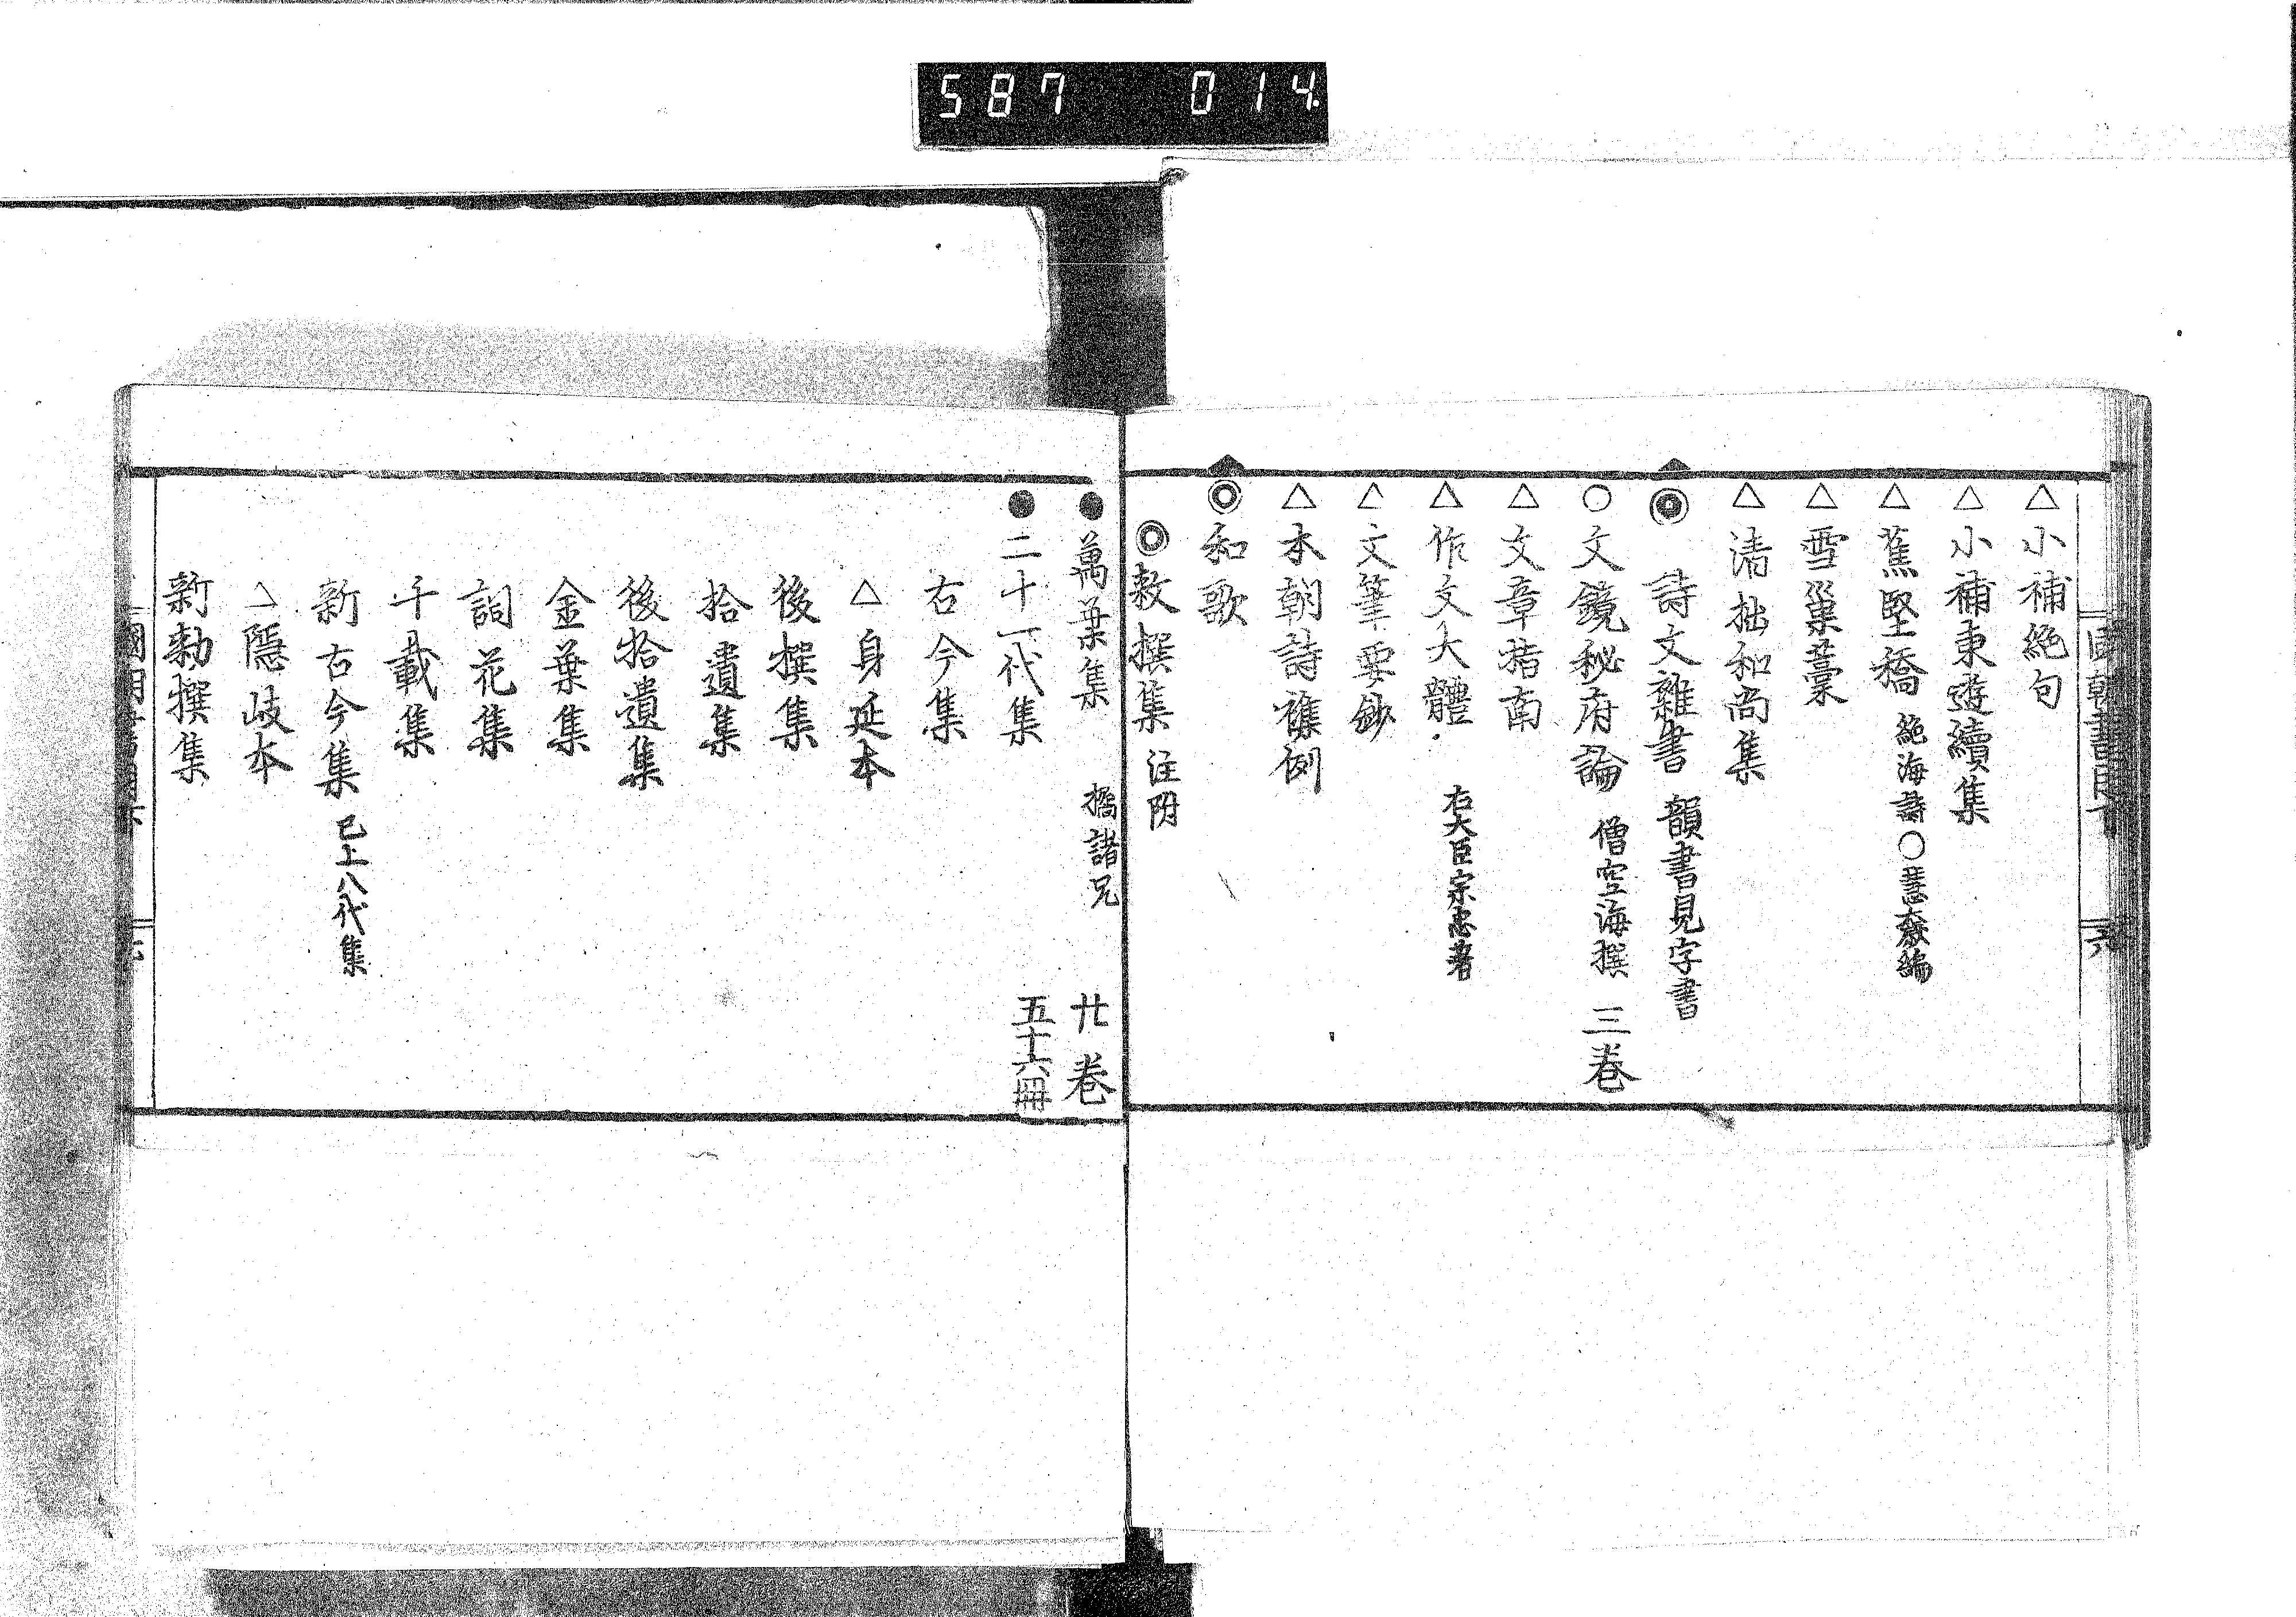 587 014
△小補絶句
△小補東遊續集
△蕉堅稿 絶海詩〇慧奯編
△雪巢藁
△清拙和尚集
◎詩文雜書 韻書見字書
○文鏡秘府論 僧空海撰 三巻
△文章指南
△作文大體 右大臣宗忠著
△文筆要鈔
△本朝詩雜例
◎和歌
◎敕撰集 注附
●萬葉集 橘諸兄 廿巻
●二十一代集 五十六冊
古今集
△身延本
後撰集
拾遺集
後拾遺集
金葉集
詞花集
千載集
新古今集 已上八代集
△隱岐本
新勅撰集